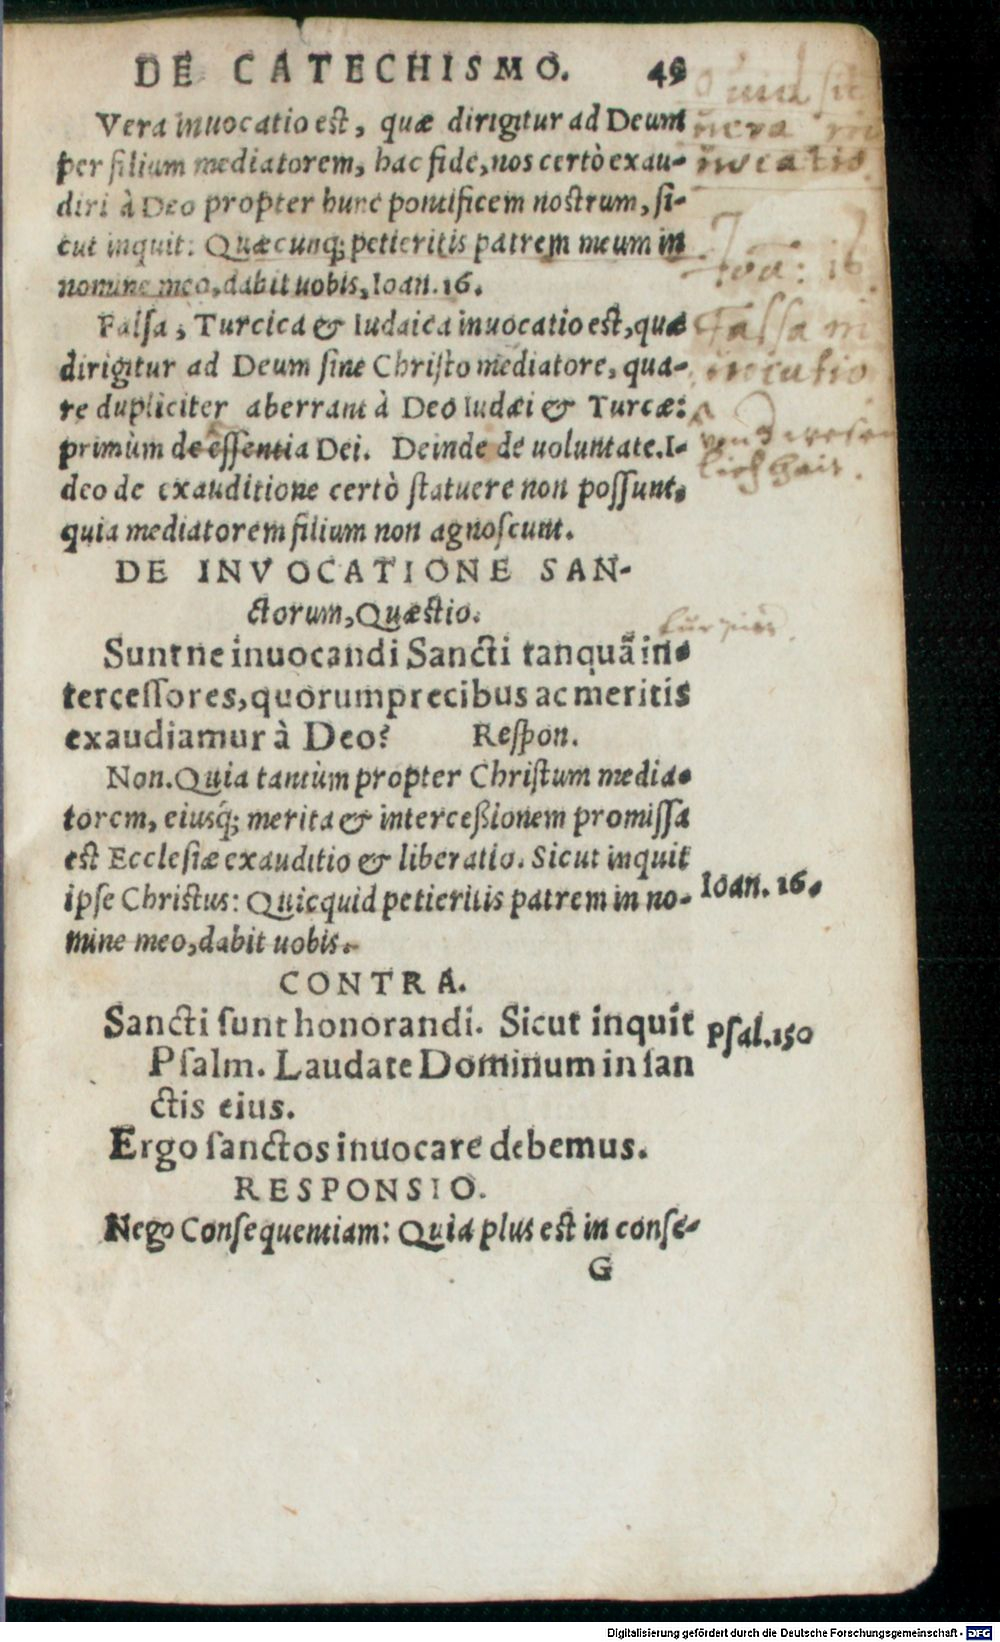 DE CATECHISMO. 49
Vera inuocatio est, quæ dirigitur ad Deum
per filium mediatorem, hac fide, nos certò exau-
diri à Deo propter hunc pontificem nostrum, si-
cut inquit: Quæcunq; petieritis patrem meum in
nomine meo, dabit uobis, Ioan. 16.
Falsa, Turcica & Iudaica inuocatio est, quæ
dirigitur ad Deum sine Christo mediatore, qua-
re dupliciter aberrant à Deo Iudæi & Turcæ:
primùm de essentia Dei. Deinde de uoluntate. I-
deo de exauditione certò statuere non possunt,
quia mediatorem filium non agnoscunt.
DE INVOCATIONE SAN-
ctorum, Quæstio.
Suntne inuocandi Sancti tanquã in-
tercessores, quorum precibus ac meritis
exaudiamur à Deo? Respon.
Non. Quia tantùm propter Christum media-
torem, eiusq́; merita & intercessionem promissa
est Ecclesiæ exauditio & liberatio. Sicut inquit
ipse Christus: Quicquid petieritis patrem in no-
mine meo, dabit uobis.
Ioan. 16.
CONTRA.
Sancti sunt honorandi. Sicut inquit
Psalm. Laudate Dominum in san
ctis eius.
Psal. 150
Ergo sanctos inuocare debemus.
RESPONSIO.
Nego Consequentiam: Quia plus est in conse-
G
Quid sit
uera in
uocatio
Ioã: 16.
Falsa in
uocatio
Digitalisierung gefördert durch die Deutsche Forschungsgemeinschaft - DFG